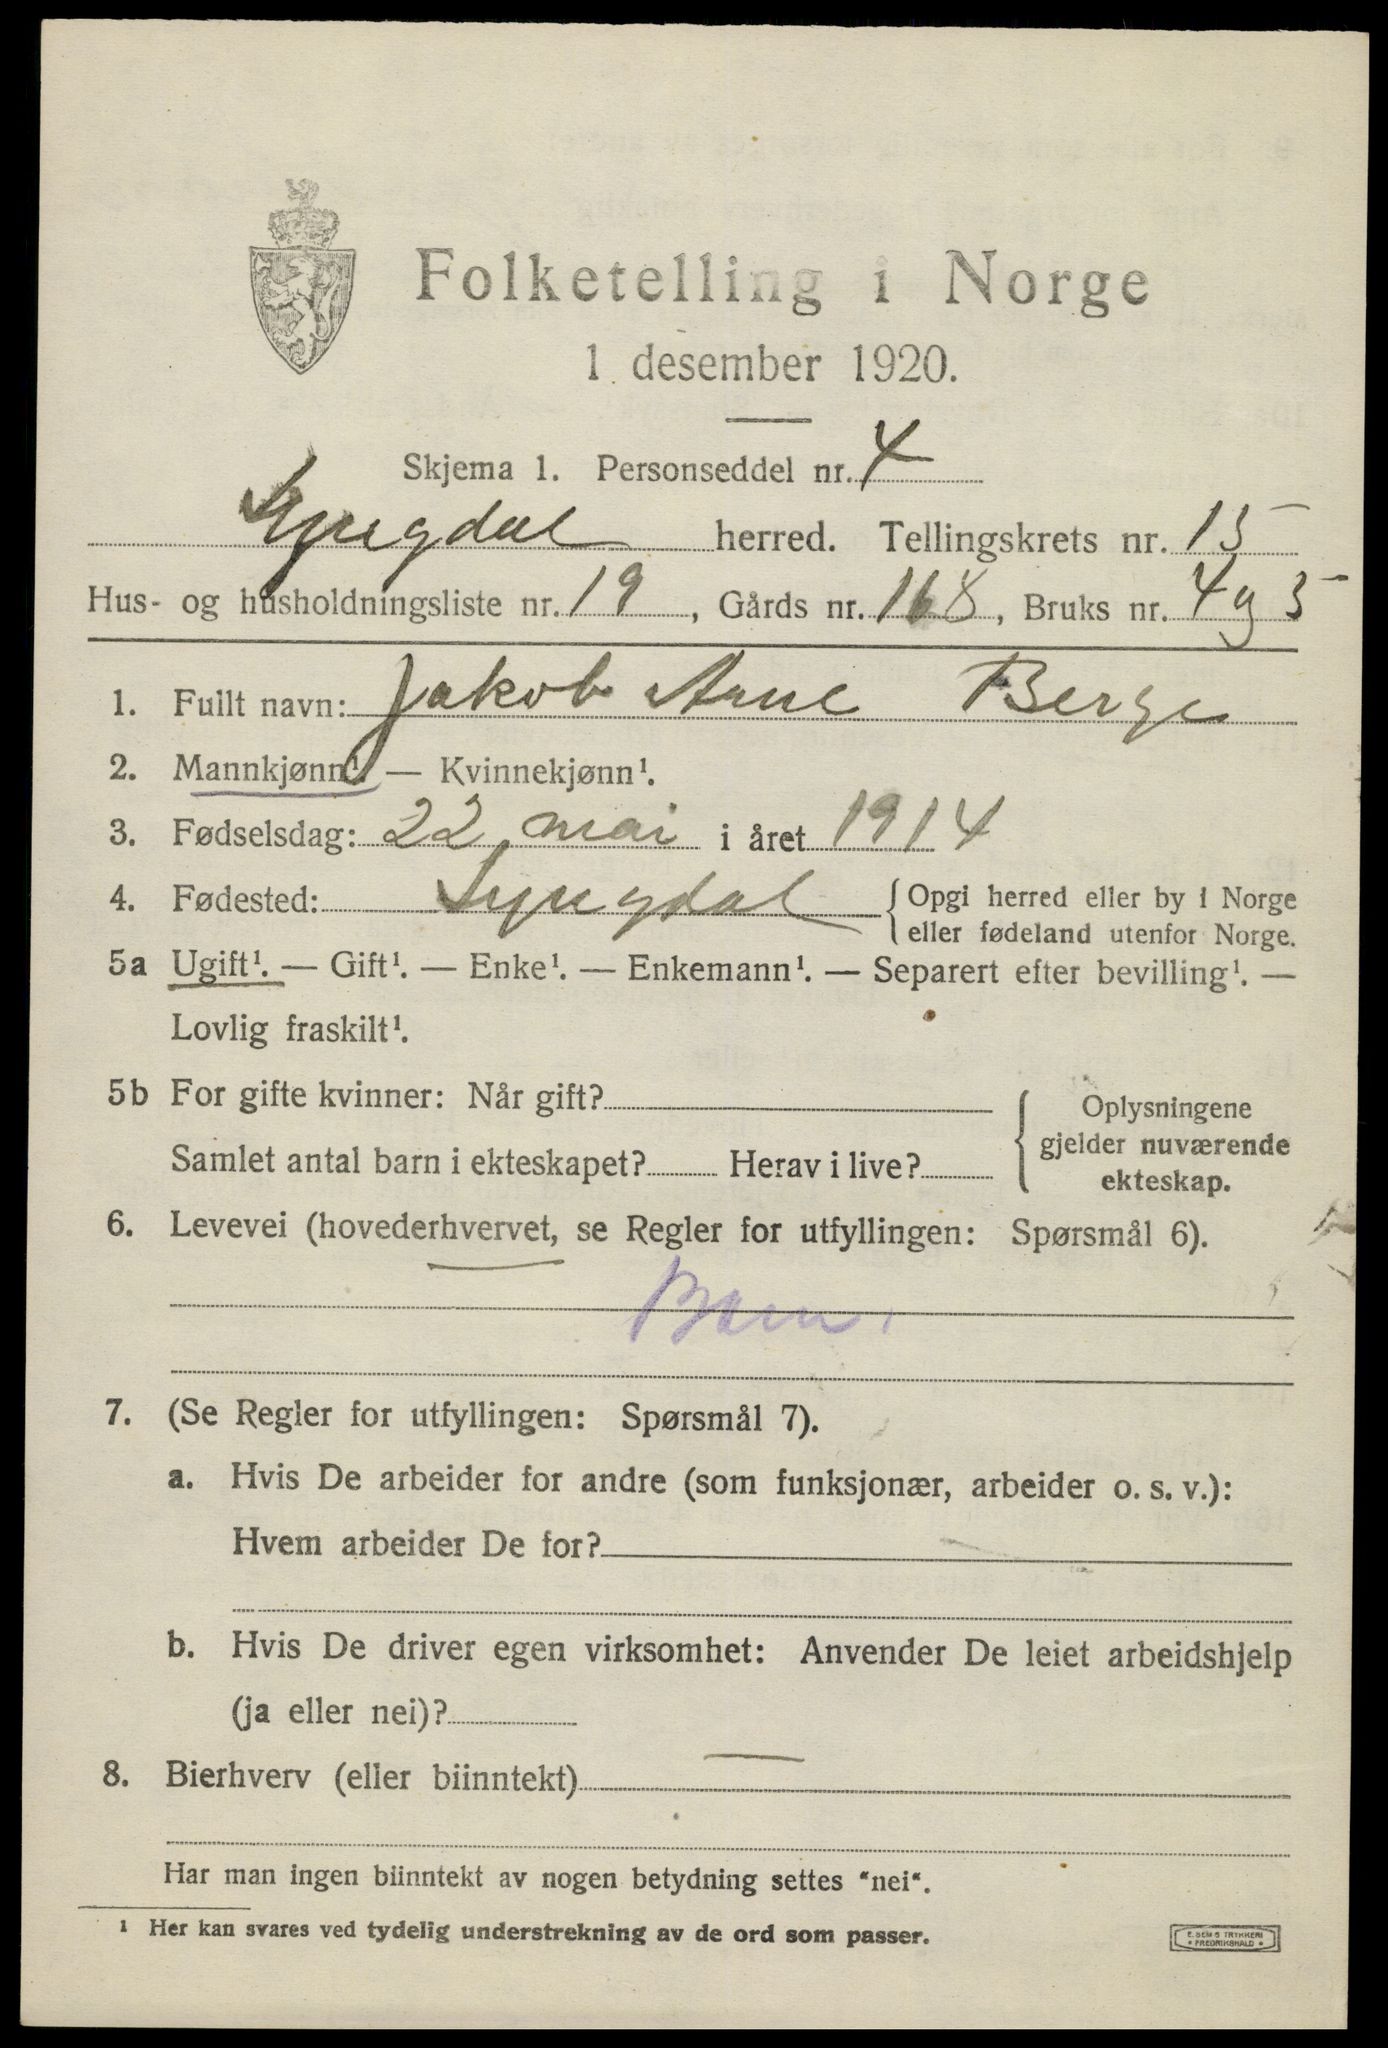 Folketelling i Norge
1 desember 1920.
Skjema 1. Personseddel nr. 4
Lyngdal herred. Tellingskrets nr. 15
Hus- og husholdningsliste nr. 19, Gårds nr. 168, Bruks nr. 4 og 5
1. Fullt navn: Jakob Arne Berge
2. Mannkjønn¹. — Kvinnekjønn¹.
3. Fødselsdag: 22 mai i året 1914
4. Fødested: Lyngdal { Opgi herred eller by i Norge
eller fødeland utenfor Norge.
5a Ugift¹. — Gift¹. — Enke¹. — Enkemann¹. — Separert efter bevilling¹. —
Lovlig fraskilt¹.
5b For gifte kvinner: Når gift?
Samlet antal barn i ekteskapet? Herav i live?
{ Oplysningene
gjelder nuværende
ekteskap.
6. Levevei (hovederhvervet, se Regler for utfyllingen: Spørsmål 6).
Barn.
7. (Se Regler for utfyllingen: Spørsmål 7).
a. Hvis De arbeider for andre (som funksjonær, arbeider o. s. v.):
Hvem arbeider De for?
b. Hvis De driver egen virksomhet: Anvender De leiet arbeidshjelp
(ja eller nei)?
8. Bierhverv (eller biinntekt) —
Har man ingen biinntekt av nogen betydning settes "nei".
¹ Her kan svares ved tydelig understrekning av de ord som passer.
E. SEM'S TRYKKERI
• FREDRIKSHALD •